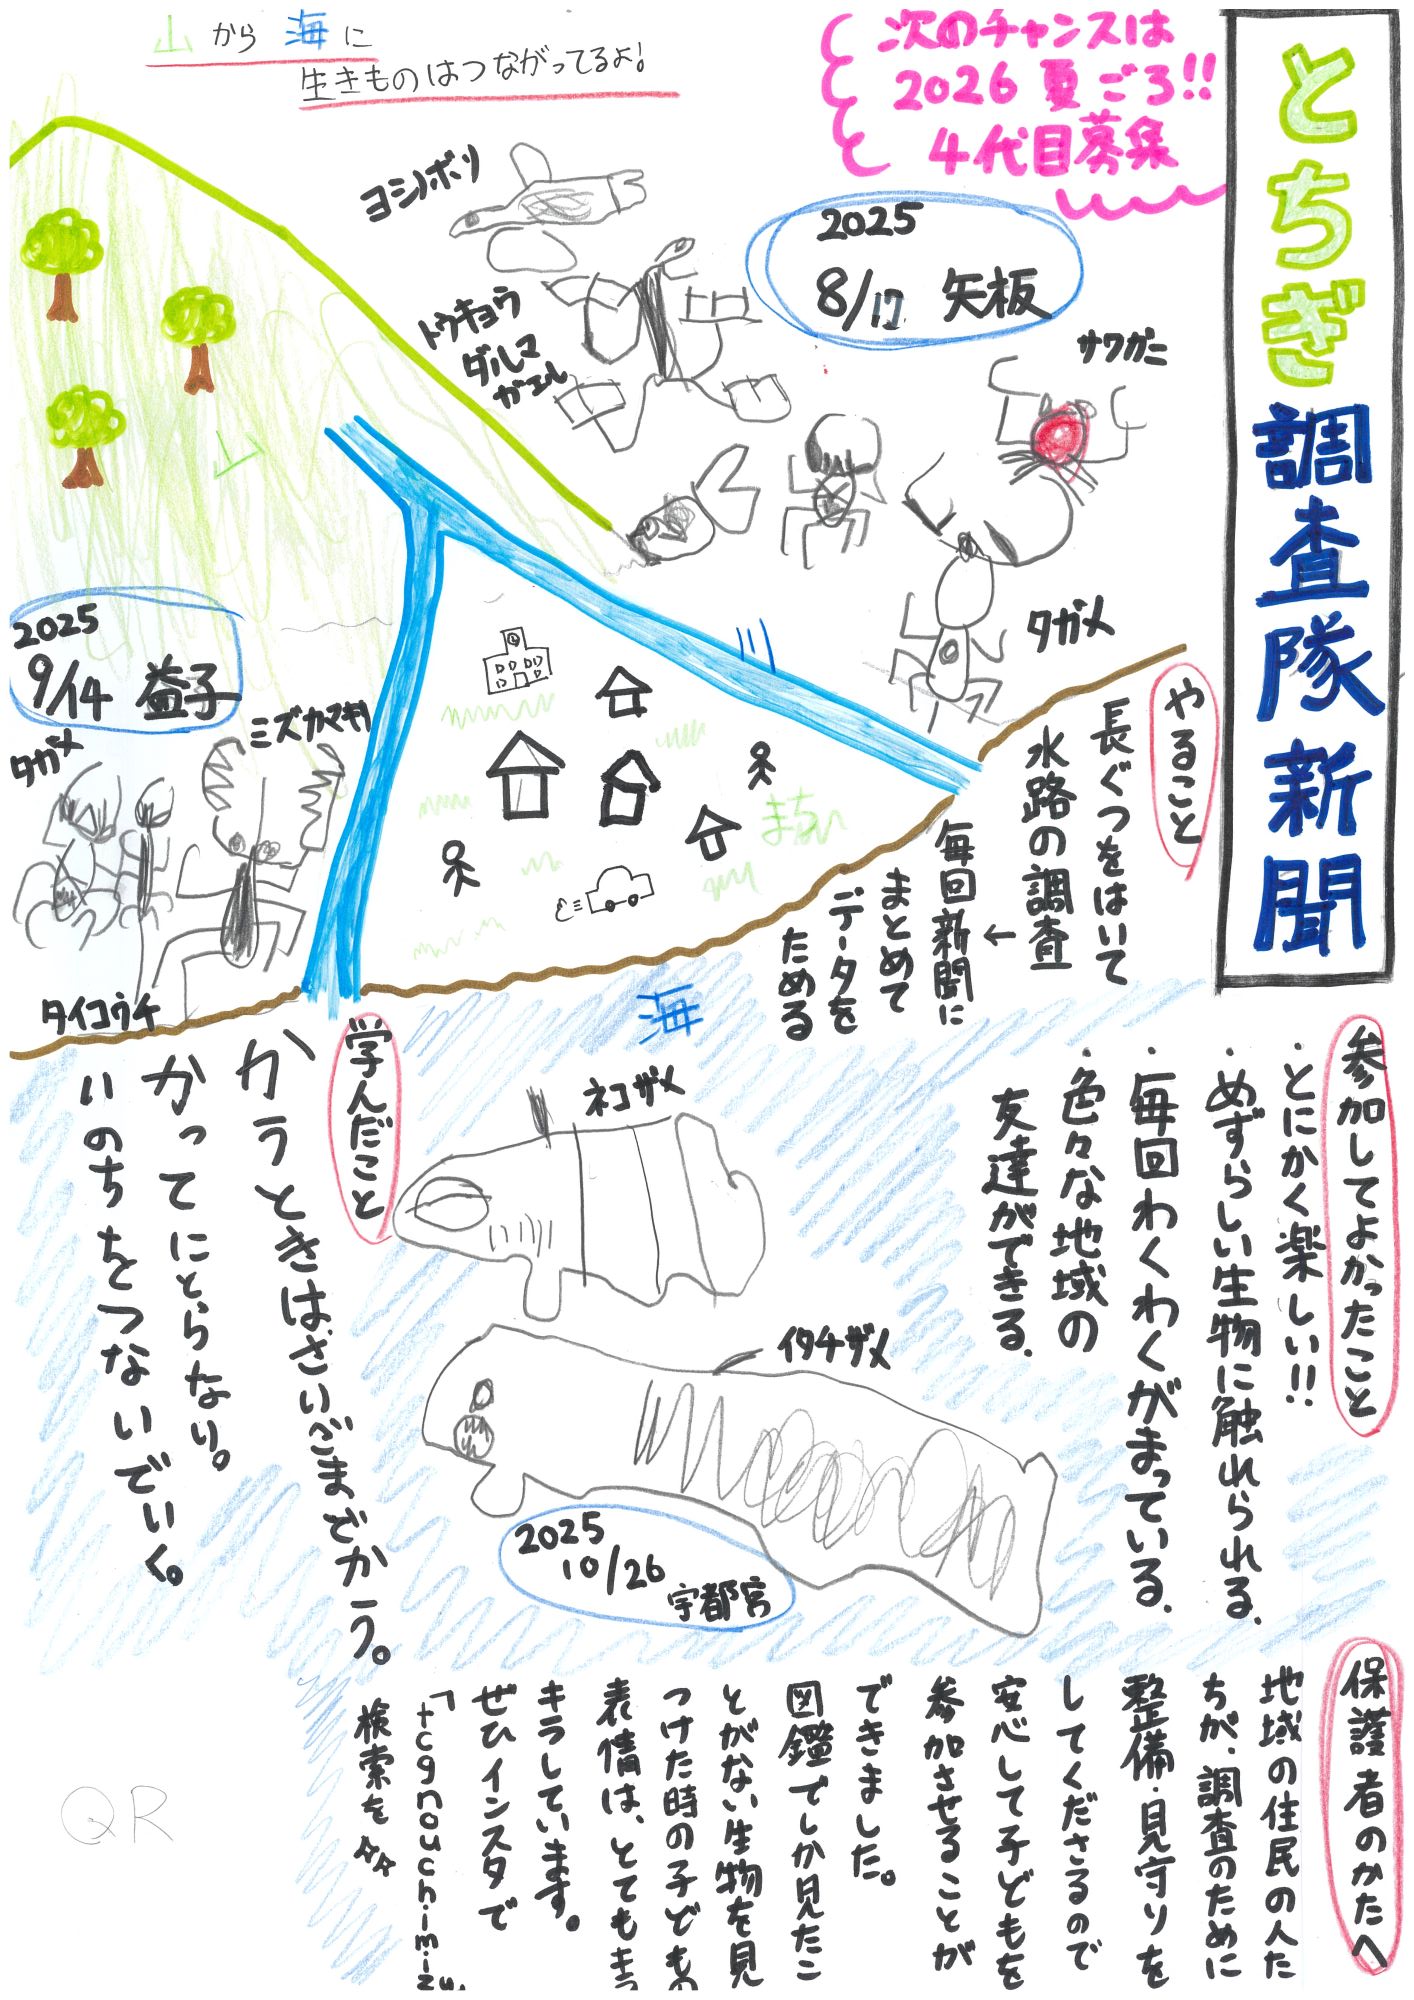 とちぎ調査隊新聞
次のチャンスは
2026 夏ごろ!!
4代目募集
山から海に
生きものはつながってるよ!
2025
8/17 矢板
ヨシノボリ
トウキョウ
ダルマ
ガエル
サワガニ
タガメ
山
2025
9/14 益子
タガメ
ミズカマキリ
タイコウチ
まち
海
やること
長ぐつをはいて
水路の調査
↓
毎回新聞に
まとめて
データを
ためる
参加してよかったこと
・とにかく楽しい!!
・めずらしい生物に触れられる.
・毎回わくわくがまっている.
・色々な地域の
友達ができる.
ネコザメ
イタチザメ
2025
10/26
宇都宮
学んだこと
かうときはさいごまでかう。
かってにとらない。
いのちをつないでいく。
保護者のかたへ
地域の住民の人た
ちが、調査のために
整備・見守りを
してくださるので
安心して子どもを
参加させることが
できました。
図鑑でしか見たこ
とがない生物を見
つけた時の子どもの
表情は、とてもキラ
キラしています。
ぜひインスタで
「tcgnouchimizu
検索を☆☆
QR